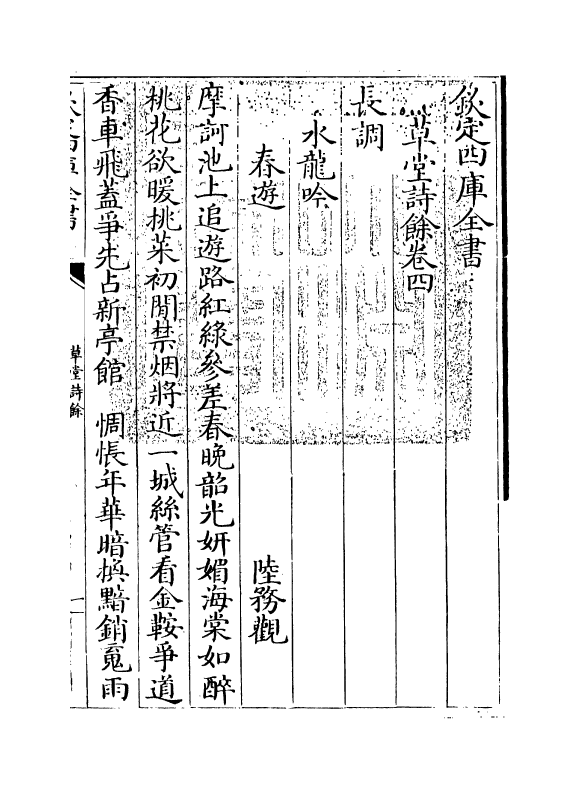 欽定四庫全書
草堂詩餘卷四
長調
水龍吟
春遊　陸務觀
摩訶池上追遊路紅綠參差春晚韶光妍媚海棠如醉
桃花欲暖挑菜初閒禁烟將近一城絲管看金鞍爭道
香車飛蓋爭先占新亭館　惆悵年華暗換黯銷䰟雨
草堂詩餘